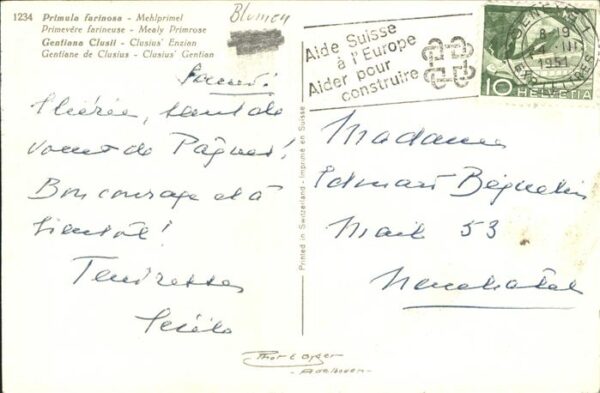 1234 Primula farinosa - Mehlprimel
Primevère farineuse - Mealy Primrose
Gentiana Clusii - Clusius' Enzian
Gentiane de Clusius - Clusius' Gentian
Blumen
Aide Suisse
à l'Europe
Aider pour
construire
GENEVE 1
8-19
III
1951
10 HELVETIA
Samedi!
Chérie,
de Pâques!
Bon courage et à
bientôt!
Tendresses
Printed in Switzerland - Imprimé en Suisse
Madame
Edouard Béguelin
Mail 53
Neuchâtel
Phot E Gyger
- Adelboden -